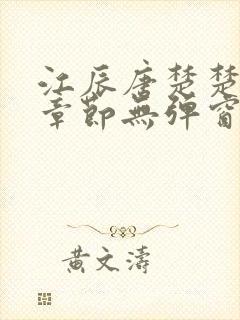 江辰唐楚楚
章節無彈窗
黃文濤